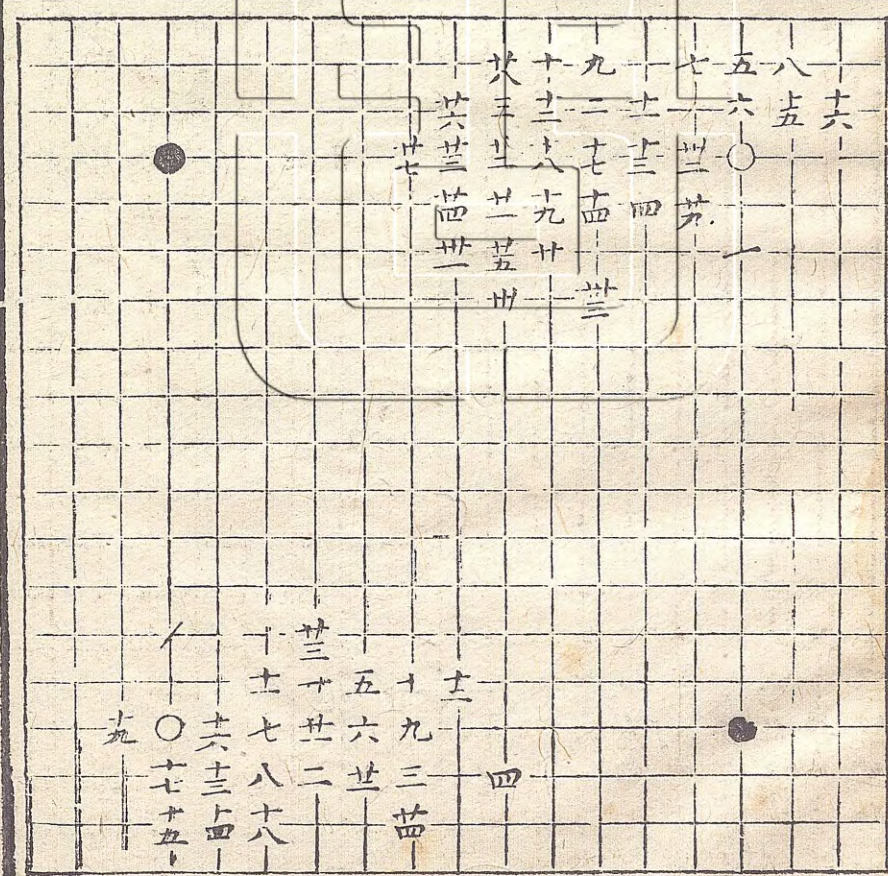 廿八 十 九 七 五 八
廿六 三 十二 二 十一 六 十五 十六
廿七 廿三 廿二 十八 十七 十三 卅二
廿四 廿一 十九 十四 四 廿九
卅一 廿五 廿 一
卅 卅三
一 廿三
十一 五 十 十二
十九 十六 七 廿一 六 九
十七 十三 八 二 三 四
十五 十四 十八 廿四